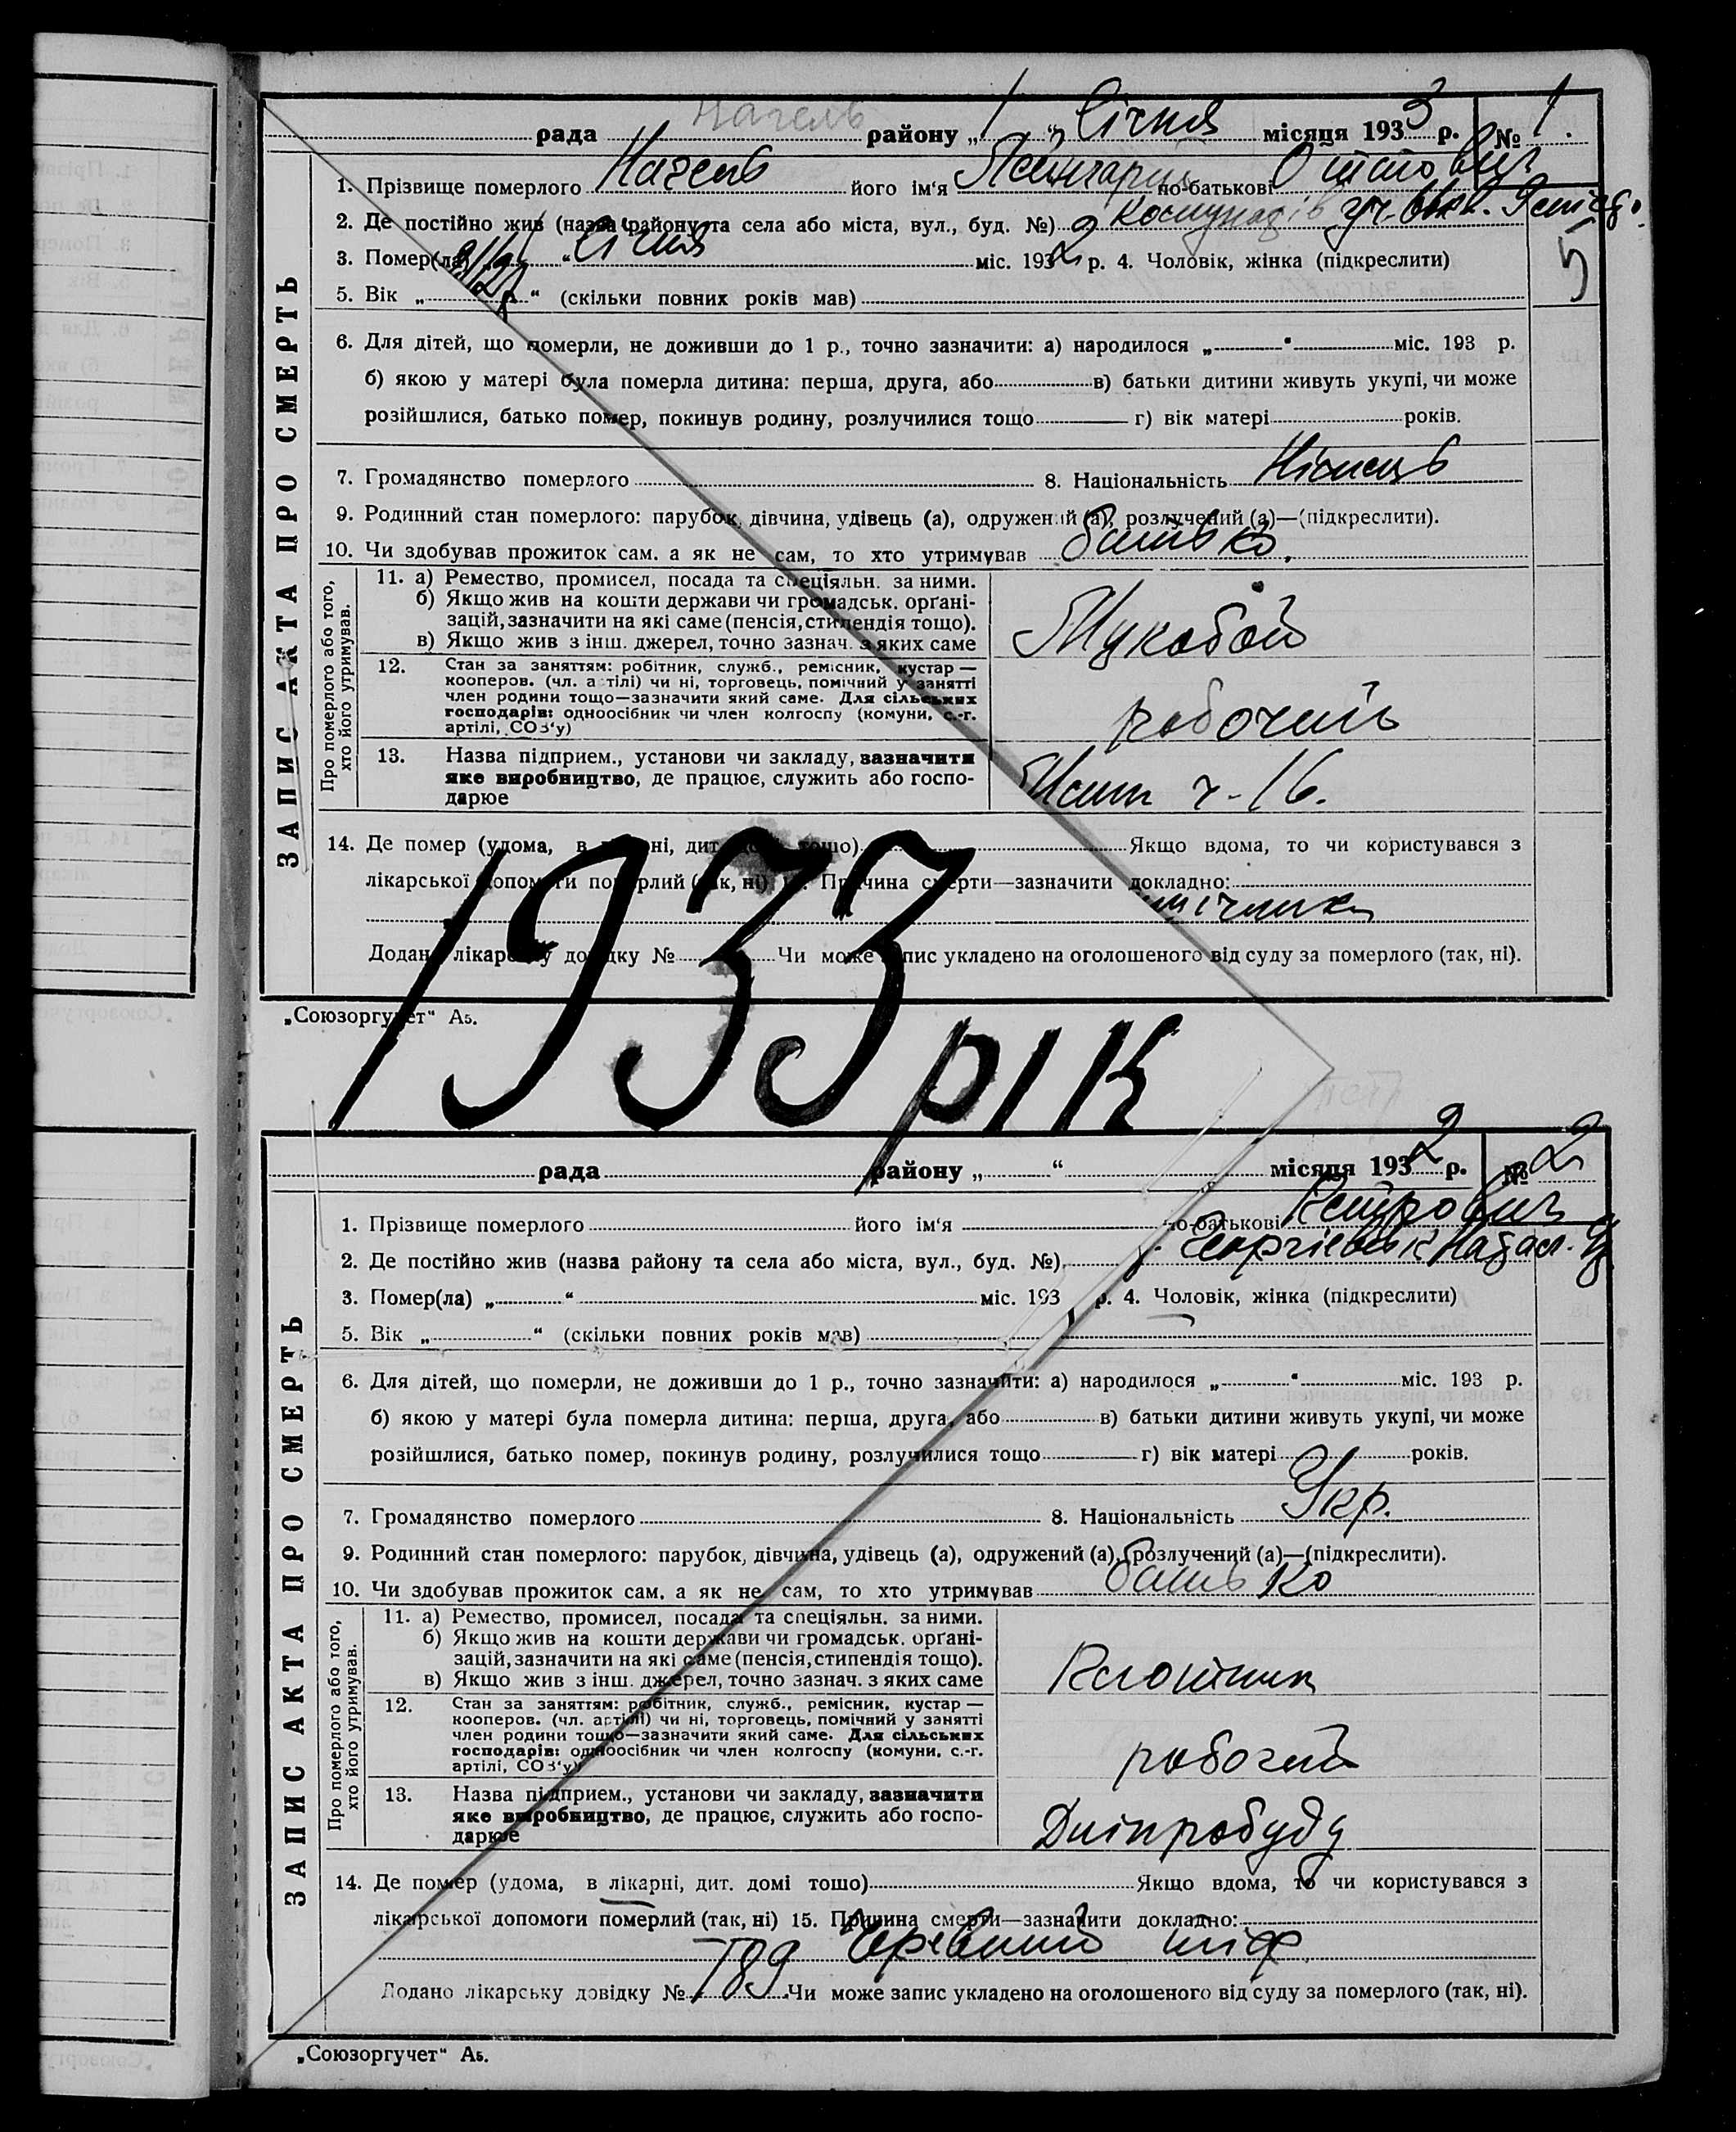 Нагель
рада району „1“ Січня місяця 1933 р. № 1.
1. Прізвище померлого Нагель його ім'я по-батькові Оттович
2. Де постійно жив (назва району та села або міста, вул., буд. №)
3. Помер(ла) „ “ Січня міс. 1932 р. 4. Чоловік, жінка (підкреслити)
5
5. Вік „ “ (скільки повних років мав)
6. Для дітей, що померли, не доживши до 1 р., точно зазначити: а) народилося „ “ міс. 193 р.
б) якою у матері була померла дитина: перша, друга, або в) батьки дитини живуть укупі, чи може
розійшлися, батько помер, покинув родину, розлучилися тощо г) вік матері років.
7. Громадянство померлого 8. Національність Німець
9. Родинний стан померлого: парубок, дівчина, удівець (а), одружений (а), розлучений (а)—(підкреслити).
10. Чи здобував прожиток сам, а як не сам, то хто утримував батько.
ЗАПИС АКТА ПРО СМЕРТЬ
Про померлого або того,
хто його утримував.
11. а) Ремество, промисел, посада та спеціяльн. за ними.
б) Якщо жив на кошти держави чи громадськ. орґані-
зацій, зазначити на які саме (пенсія, стипендія тощо).
в) Якщо жив з інш. джерел, точно зазнач. з яких саме
12. Стан за заняттям: робітник, служб., ремісник, кустар —
кооперов. (чл. артілі) чи ні, торговець, помічний у занятті
член родини тощо—зазначити який саме. Для сільських
господарів: одноосібник чи член колгоспу (комуни, с.-г.
артілі, СОЗ'у)
робочий
13. Назва підприєм., установи чи закладу, зазначити
яке виробництво, де працює, служить або госпо-
дарює
ч-16.
14. Де помер (удома, в лікарні, дит. домі тощо) Якщо вдома, то чи користувався з
лікарської допомоги померлий (так, ні) 15. Причина смерти—зазначити докладно:
Додано лікарську довідку № Чи може запис укладено на оголошеного від суду за померлого (так, ні).
„Союзоргучет“ А5.
1933 рік
рада району „ “ місяця 1932 р. № 2
1. Прізвище померлого його ім'я по-батькові Петрович
2. Де постійно жив (назва району та села або міста, вул., буд. №)
3. Помер(ла) „ “ міс. 193 р. 4. Чоловік, жінка (підкреслити)
5. Вік „ “ (скільки повних років мав)
6. Для дітей, що померли, не доживши до 1 р., точно зазначити: а) народилося „ “ міс. 193 р.
б) якою у матері була померла дитина: перша, друга, або в) батьки дитини живуть укупі, чи може
розійшлися, батько помер, покинув родину, розлучилися тощо г) вік матері років.
7. Громадянство померлого 8. Національність Укр.
9. Родинний стан померлого: парубок, дівчина, удівець (а), одружений (а), розлучений (а)—(підкреслити).
10. Чи здобував прожиток сам, а як не сам, то хто утримував батько
ЗАПИС АКТА ПРО СМЕРТЬ
Про померлого або того,
хто його утримував.
11. а) Ремество, промисел, посада та спеціяльн. за ними.
б) Якщо жив на кошти держави чи громадськ. орґані-
зацій, зазначити на які саме (пенсія, стипендія тощо).
в) Якщо жив з інш. джерел, точно зазнач. з яких саме
12. Стан за заняттям: робітник, служб., ремісник, кустар —
кооперов. (чл. артілі) чи ні, торговець, помічний у занятті
член родини тощо—зазначити який саме. Для сільських
господарів: одноосібник чи член колгоспу (комуни, с.-г.
артілі, СОЗ'у)
робочий
13. Назва підприєм., установи чи закладу, зазначити
яке виробництво, де працює, служить або госпо-
дарює
Дніпробуду
14. Де помер (удома, в лікарні, дит. домі тощо) Якщо вдома, то чи користувався з
лікарської допомоги померлий (так, ні) 15. Причина смерти—зазначити докладно:
Черевний тіф
Додано лікарську довідку № 789 Чи може запис укладено на оголошеного від суду за померлого (так, ні).
„Союзоргучет“ А5.